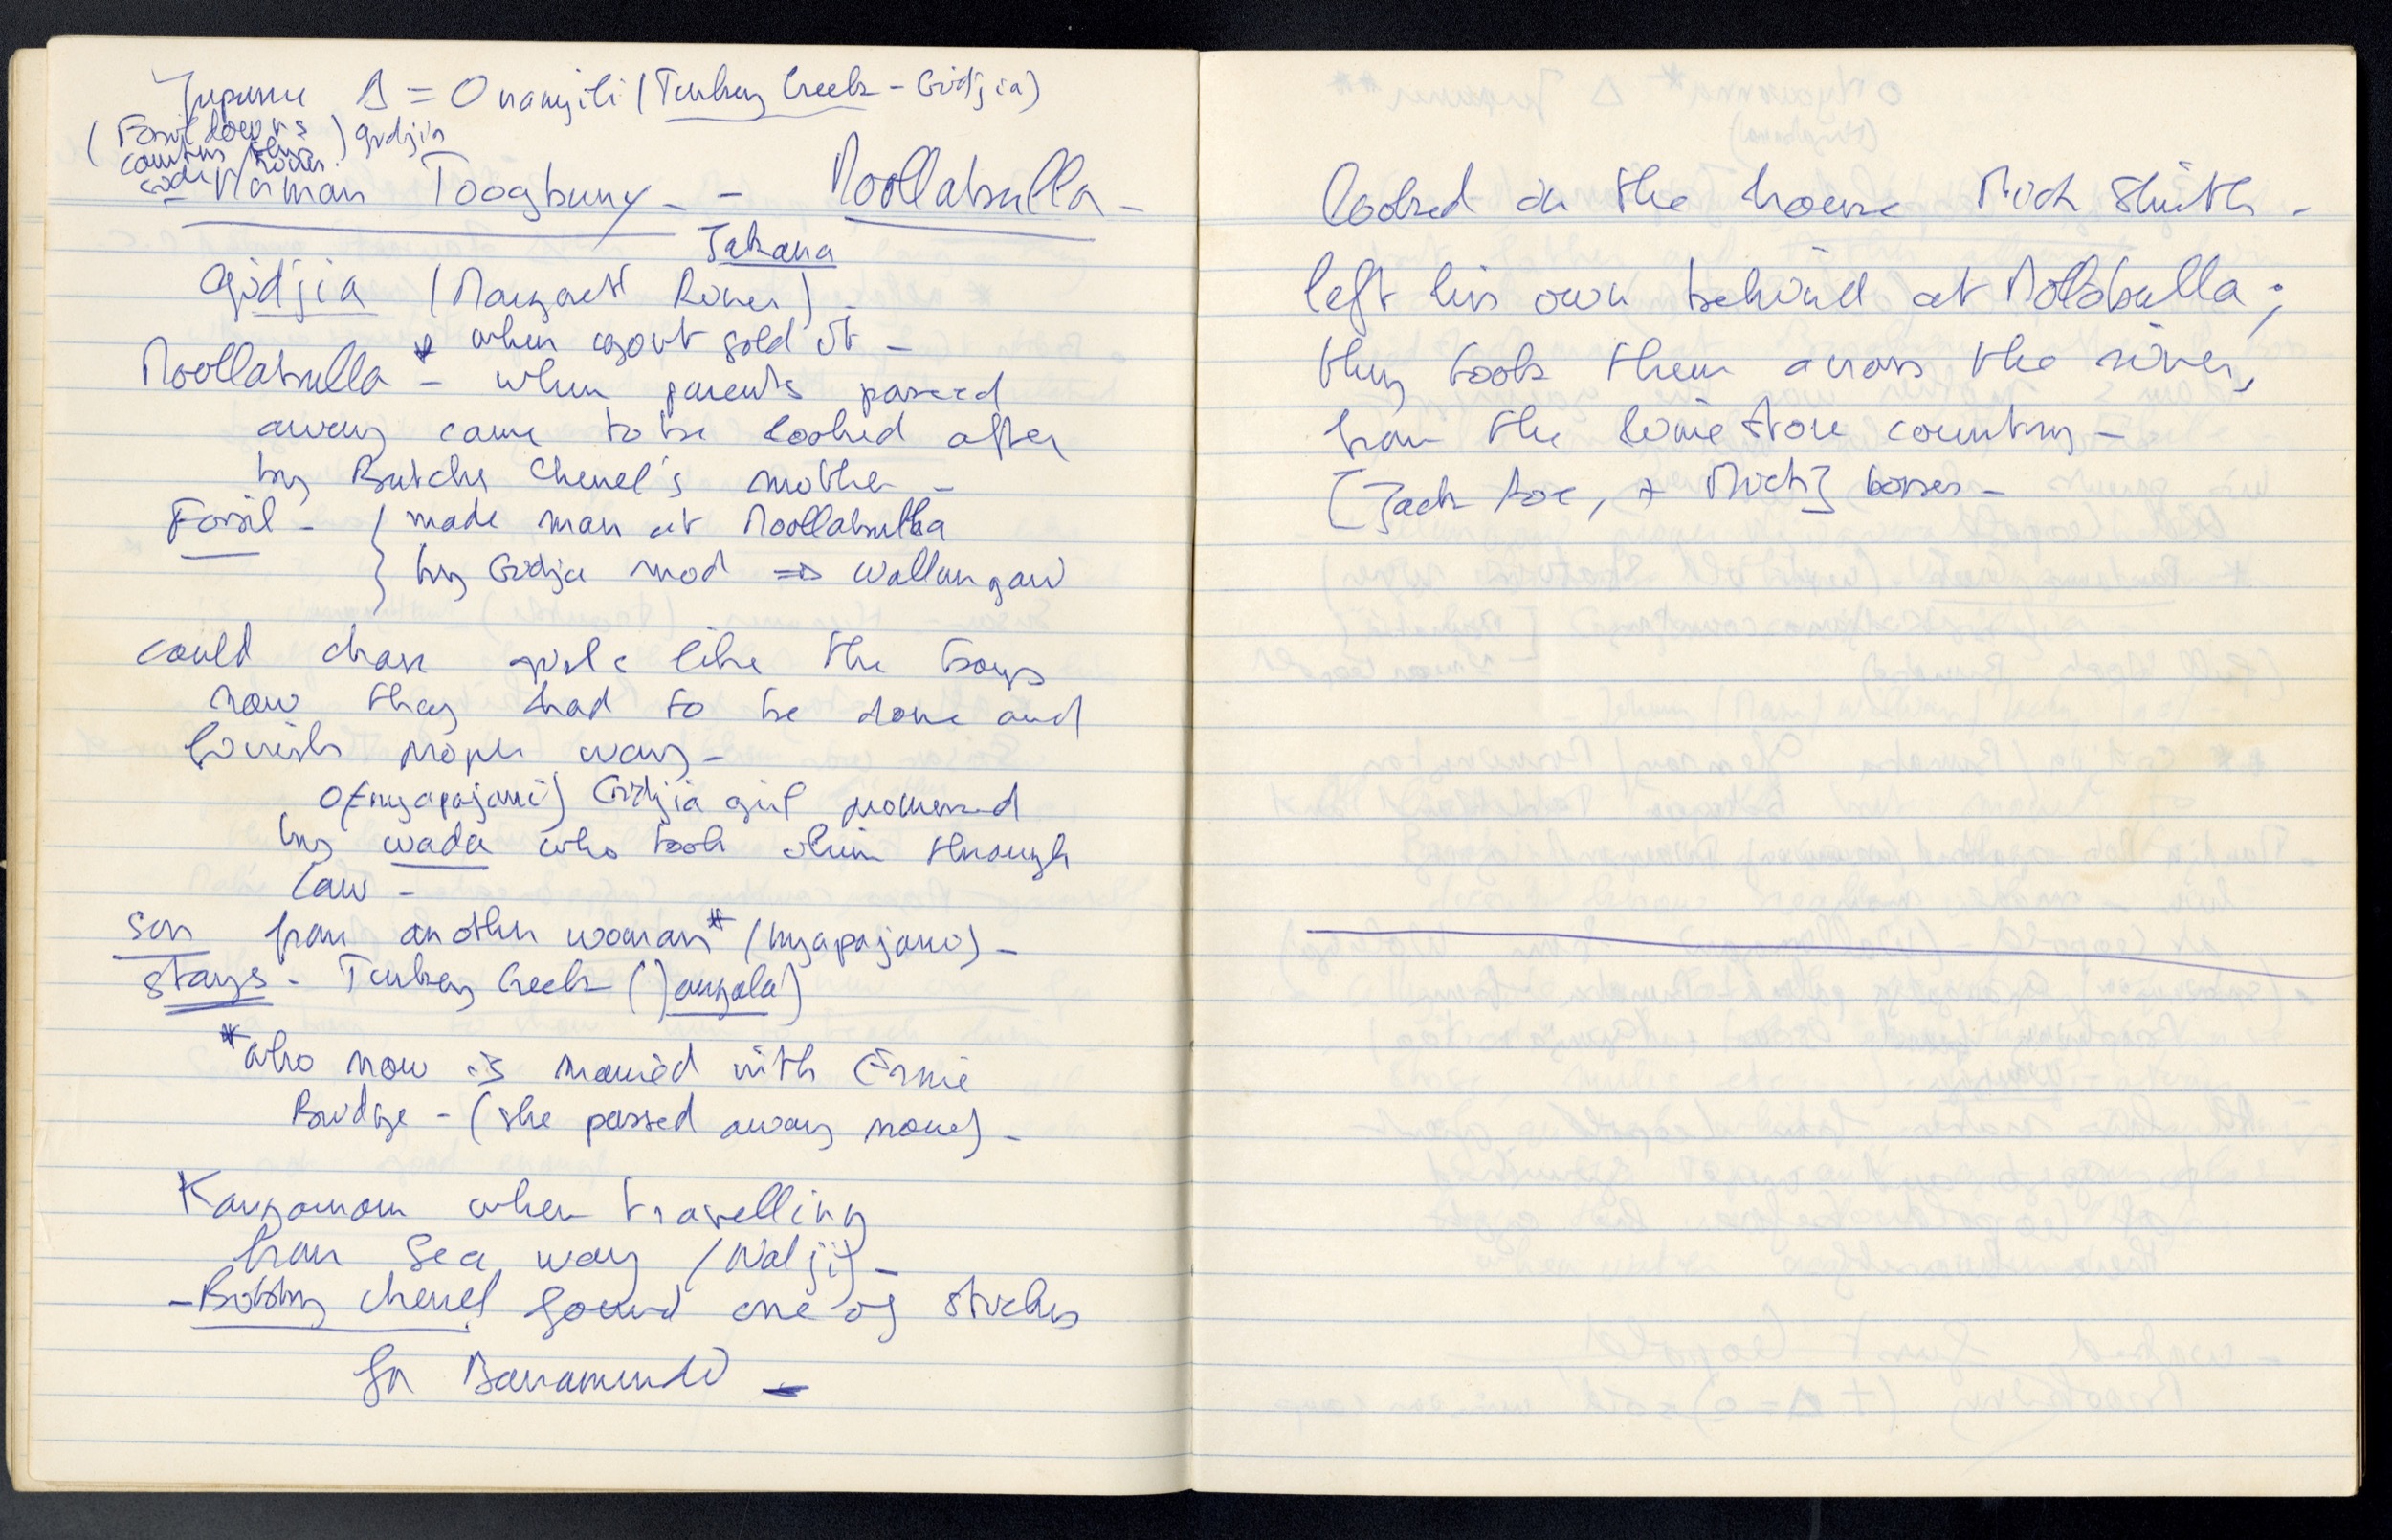 Jupurru Δ = O nangili (Turkey Creek - Gidjia)
(Fossil downs
country this ) gidjia
side / river
- Norman Toogbuny - - Moollabulla -
Jakana
Gidjia (Margaret River) -
* when govt sold it -
Moollabulla - when parents passed
away came to be looked after
by Butcher Cherel's mother -
Fossil - made man at Moollabulla
by Gidja mod ⇒ Wallungari
could chase girls like the boys
now they had to be done and
finish proper way -
O (nyapajarri) Gidjia girl promised
by wada who took him through
Law -
son from another woman* (nyapajarri) -
stays - Turkey Creek (Jangala)
* who now is married with Ernie
Bridge - (she passed away now) -
Kangamarr when travelling
from sea way (Walji) -
- Bobby cherel found one of
for Barramundi -
looked in the house Mick Smith -
left his own behind at Moolabulla ;
they took them across the river,
from the limestone country -
[Jack Fox, + Mick] bosses -